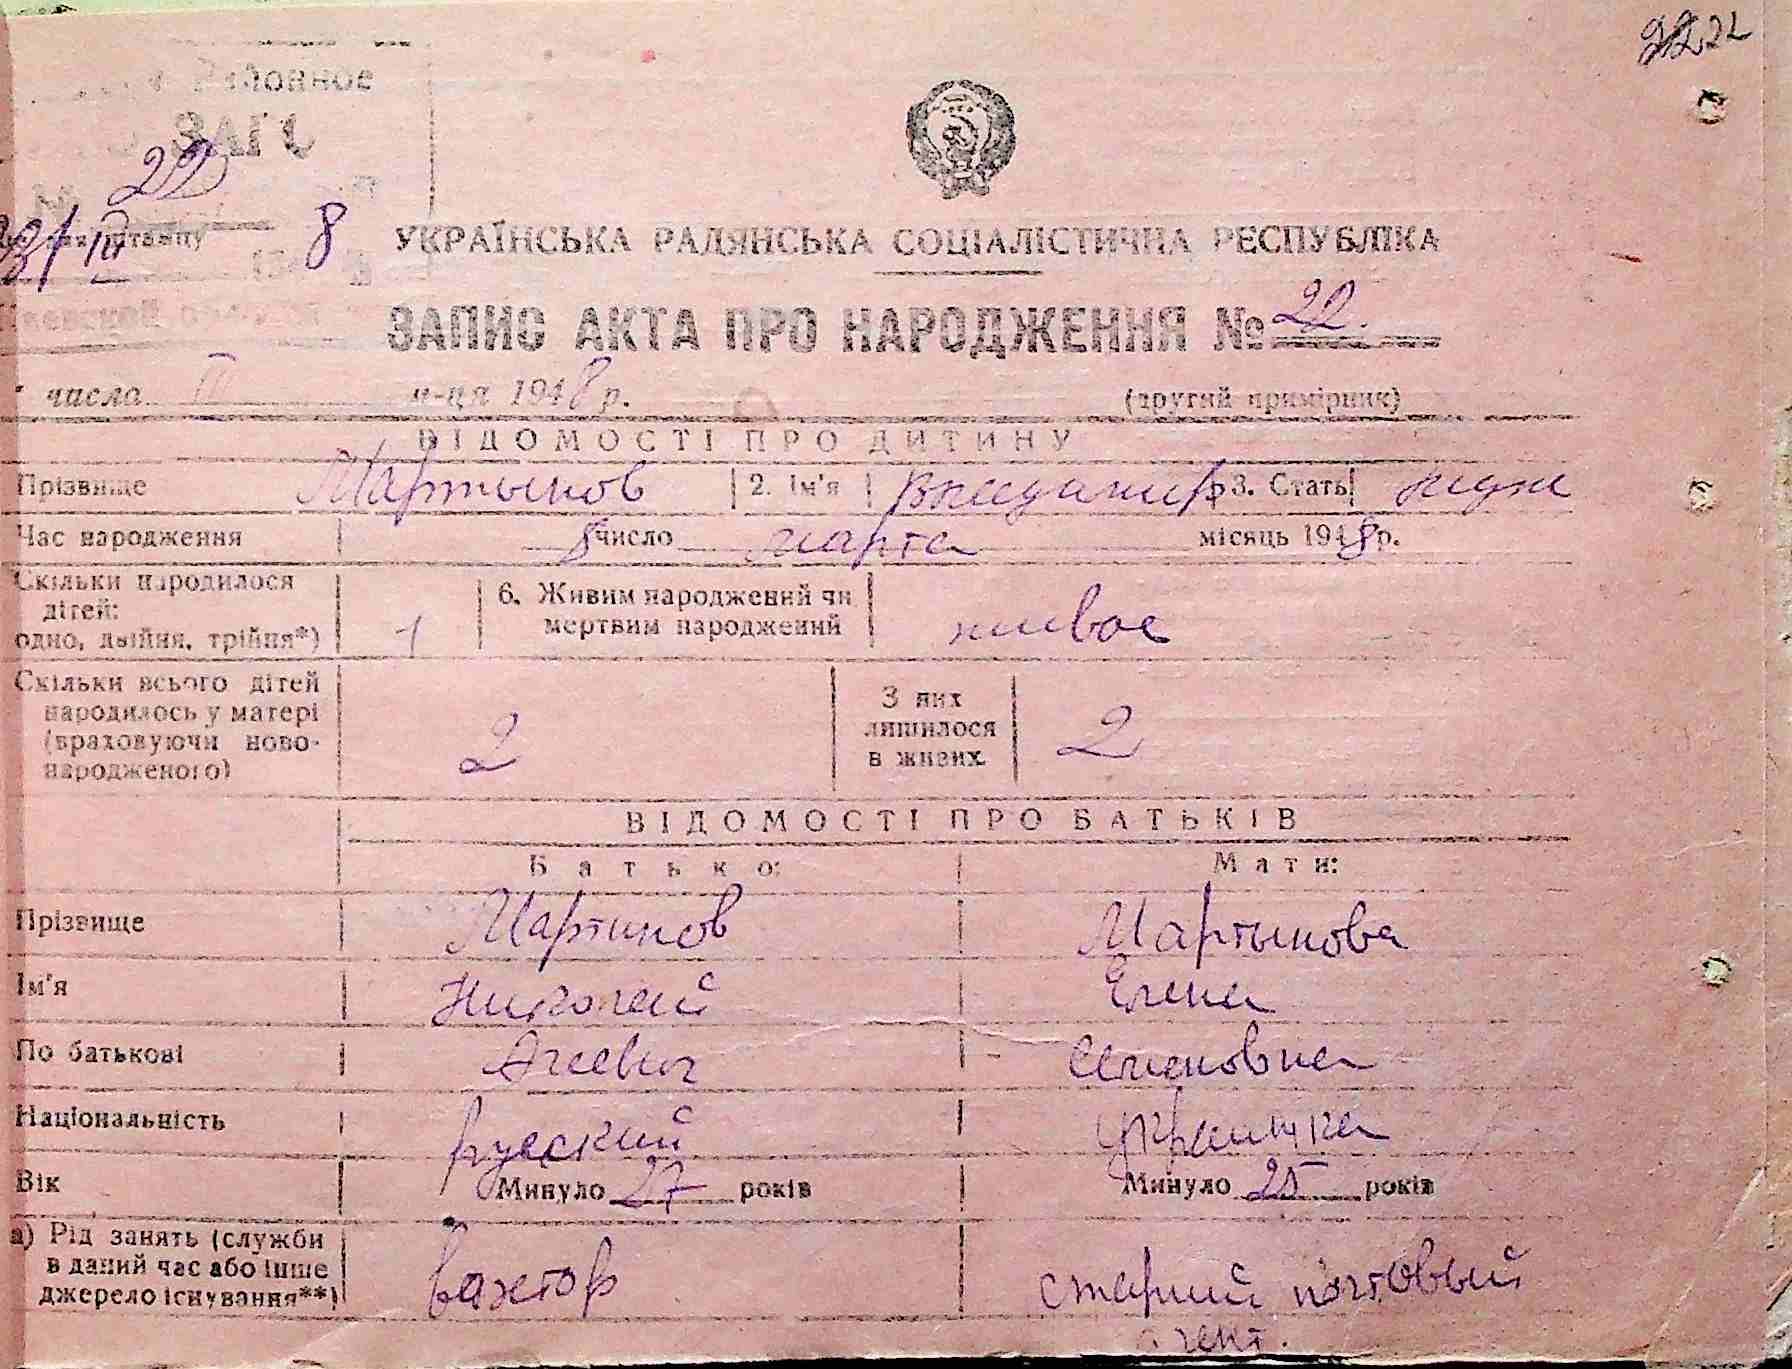 Районное
ЗАГС
22
31/III 8
УКРАЇНСЬКА РАДЯНСЬКА СОЦІАЛІСТИЧНА РЕСПУБЛІКА
ЗАПИС АКТА ПРО НАРОДЖЕННЯ № 22.
числа III м-ця 1948 р. (другий примірник)
ВІДОМОСТІ ПРО ДИТИНУ
Прізвище Мартынов 2. Ім'я Владимир 3. Стать муж
Час народження 8 число марта місяць 1948 р.
Скільки народилося
дітей:
одно, двійня, трійня*) 1 6. Живим народжений чи
мертвим народжений живое
Скільки всього дітей
народилось у матері
(враховуючи ново-
народженого) 2 З яких
лишилося
в живих 2
ВІДОМОСТІ ПРО БАТЬКІВ
Батько: Мати:
Прізвище Мартинов Мартынова
Ім'я Николай Елена
По батькові Агеевич Семеновна
Національність русский украинка
Вік Минуло 27 років Минуло 25 років
а) Рід занять (служби
в даний час або інше
джерело існування**) вахтор старший почтовый
агент.